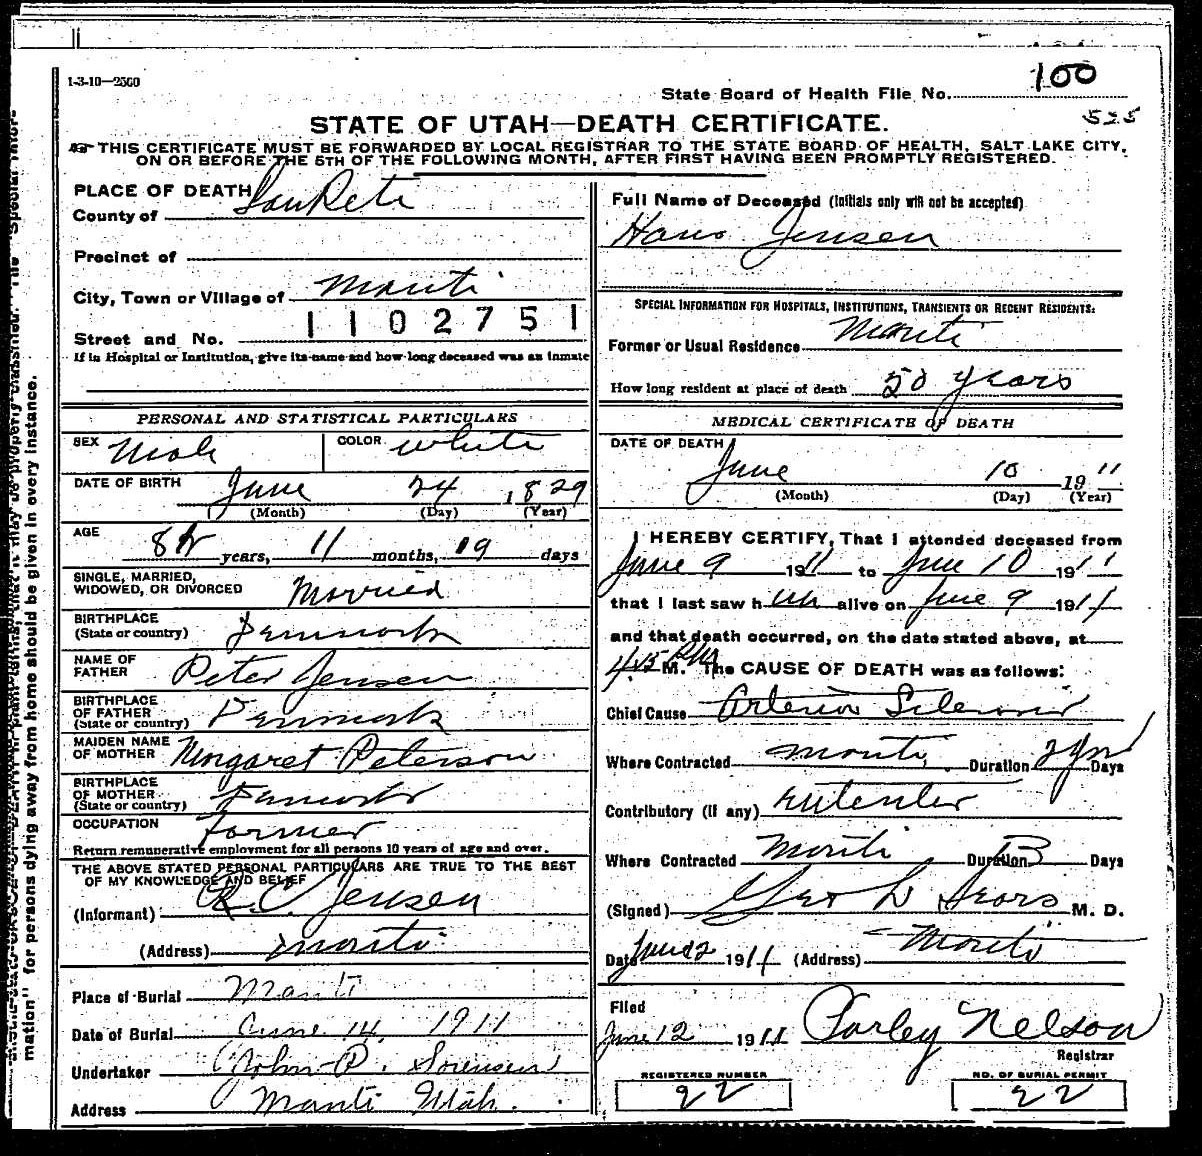 1-3-10—2500
State Board of Health File No. 100
525
STATE OF UTAH—DEATH CERTIFICATE.
THIS CERTIFICATE MUST BE FORWARDED BY LOCAL REGISTRAR TO THE STATE BOARD OF HEALTH, SALT LAKE CITY,
ON OR BEFORE THE 5TH OF THE FOLLOWING MONTH, AFTER FIRST HAVING BEEN PROMPTLY REGISTERED.
PLACE OF DEATH
County of SanPete
Precinct of
City, Town or Village of Manti
Street and No. 1102751
If in Hospital or Institution, give its name and how long deceased was an inmate
PERSONAL AND STATISTICAL PARTICULARS
SEX Male COLOR White
DATE OF BIRTH June 24 1829
(Month) (Day) (Year)
AGE years, 11 months, 19 days
SINGLE, MARRIED,
WIDOWED, OR DIVORCED Married
BIRTHPLACE
(State or country) Denmark
NAME OF
FATHER Peter Jensen
BIRTHPLACE
OF FATHER
(State or country) Denmark
MAIDEN NAME
OF MOTHER Margaret Peterson
BIRTHPLACE
OF MOTHER
(State or country) Denmark
OCCUPATION Farmer
Return remunerative employment for all persons 10 years of age and over.
THE ABOVE STATED PERSONAL PARTICULARS ARE TRUE TO THE BEST
OF MY KNOWLEDGE AND BELIEF
(Informant) R.C. Jensen
(Address) Manti
Place of Burial Manti
Date of Burial June 14, 1911
Undertaker John P. Sorensen
Address Manti Utah.
Full Name of Deceased (Initials only will not be accepted)
Hans Jensen
SPECIAL INFORMATION FOR HOSPITALS, INSTITUTIONS, TRANSIENTS OR RECENT RESIDENTS:
Former or Usual Residence Manti
How long resident at place of death 50 years
MEDICAL CERTIFICATE OF DEATH
DATE OF DEATH
June 10 1911
(Month) (Day) (Year)
I HEREBY CERTIFY, That I attended deceased from
June 9 1911 to June 10 1911
that I last saw him alive on June 9 1911
and that death occurred, on the date stated above, at
4:45 PM M. The CAUSE OF DEATH was as follows:
Chief Cause Arterio Sclerosis
Where Contracted Manti Duration 2 yrs Days
Contributory (if any)
Where Contracted Manti Duration Days
(Signed) Geo L Sears M. D.
Date June 12 1911 (Address) Manti
Filed
June 12 1911 Parley Nelson
Registrar
REGISTERED NUMBER
22
NO. OF BURIAL PERMIT
22
mation" for persons dying away from home should be given in every instance.